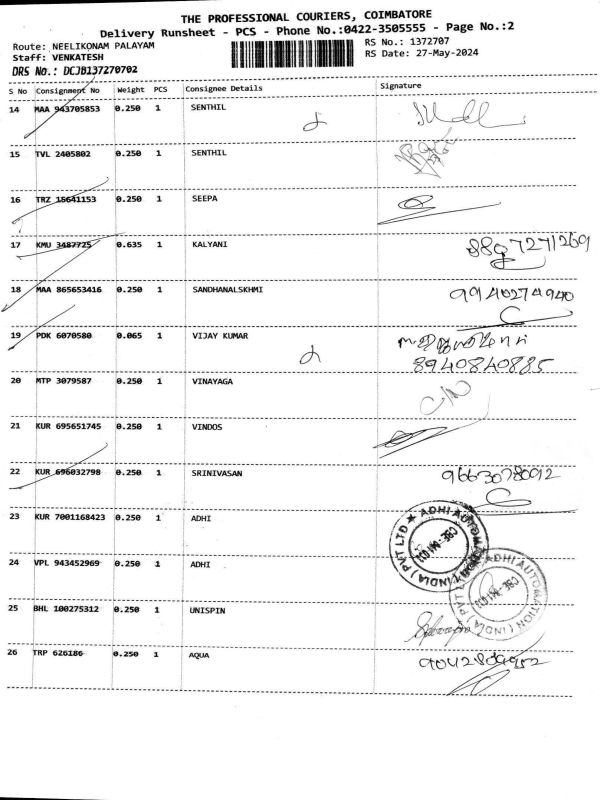 THE PROFESSIONAL COURIERS, COIMBATORE
Delivery Runsheet - PCS - Phone No.:0422-3505555 - Page No.:2
Route: NEELIKONAM PALAYAM
RS No.: 1372707
Staff: VENKATESH
RS Date: 27-May-2024
DRS No.: DCJB137270702
S No Consignment No Weight PCS Consignee Details Signature
14 MAA 943705853 0.250 1 SENTHIL
15 TVL 2405802 0.250 1 SENTHIL
16 TRZ 15641153 0.250 1 SEEPA
17 KMU 3487725 0.635 1 KALYANI
7271269
18 MAA 865653416 0.250 1 SANDHANALSKHMI 9940274940
19 PDK 6070580 0.065 1 VIJAY KUMAR
8940840885
20 MTP 3079587 0.250 1 VINAYAGA
21 KUR 695651745 0.250 1 VINDOS
22 KUR 696032798 0.250 1 SRINIVASAN 9663078092
23 KUR 7001168423 0.250 1 ADHI
ADHI AUTOMATION (INDIA) PVT LTD ★
CBE-641 021
24 VPL 943452969 0.250 1 ADHI
ADHI AUTOMATION (INDIA) PVT LTD
CBE-641 021
25 BHL 100275312 0.250 1 UNISPIN
26 TRP 626186 0.250 1 AQUA